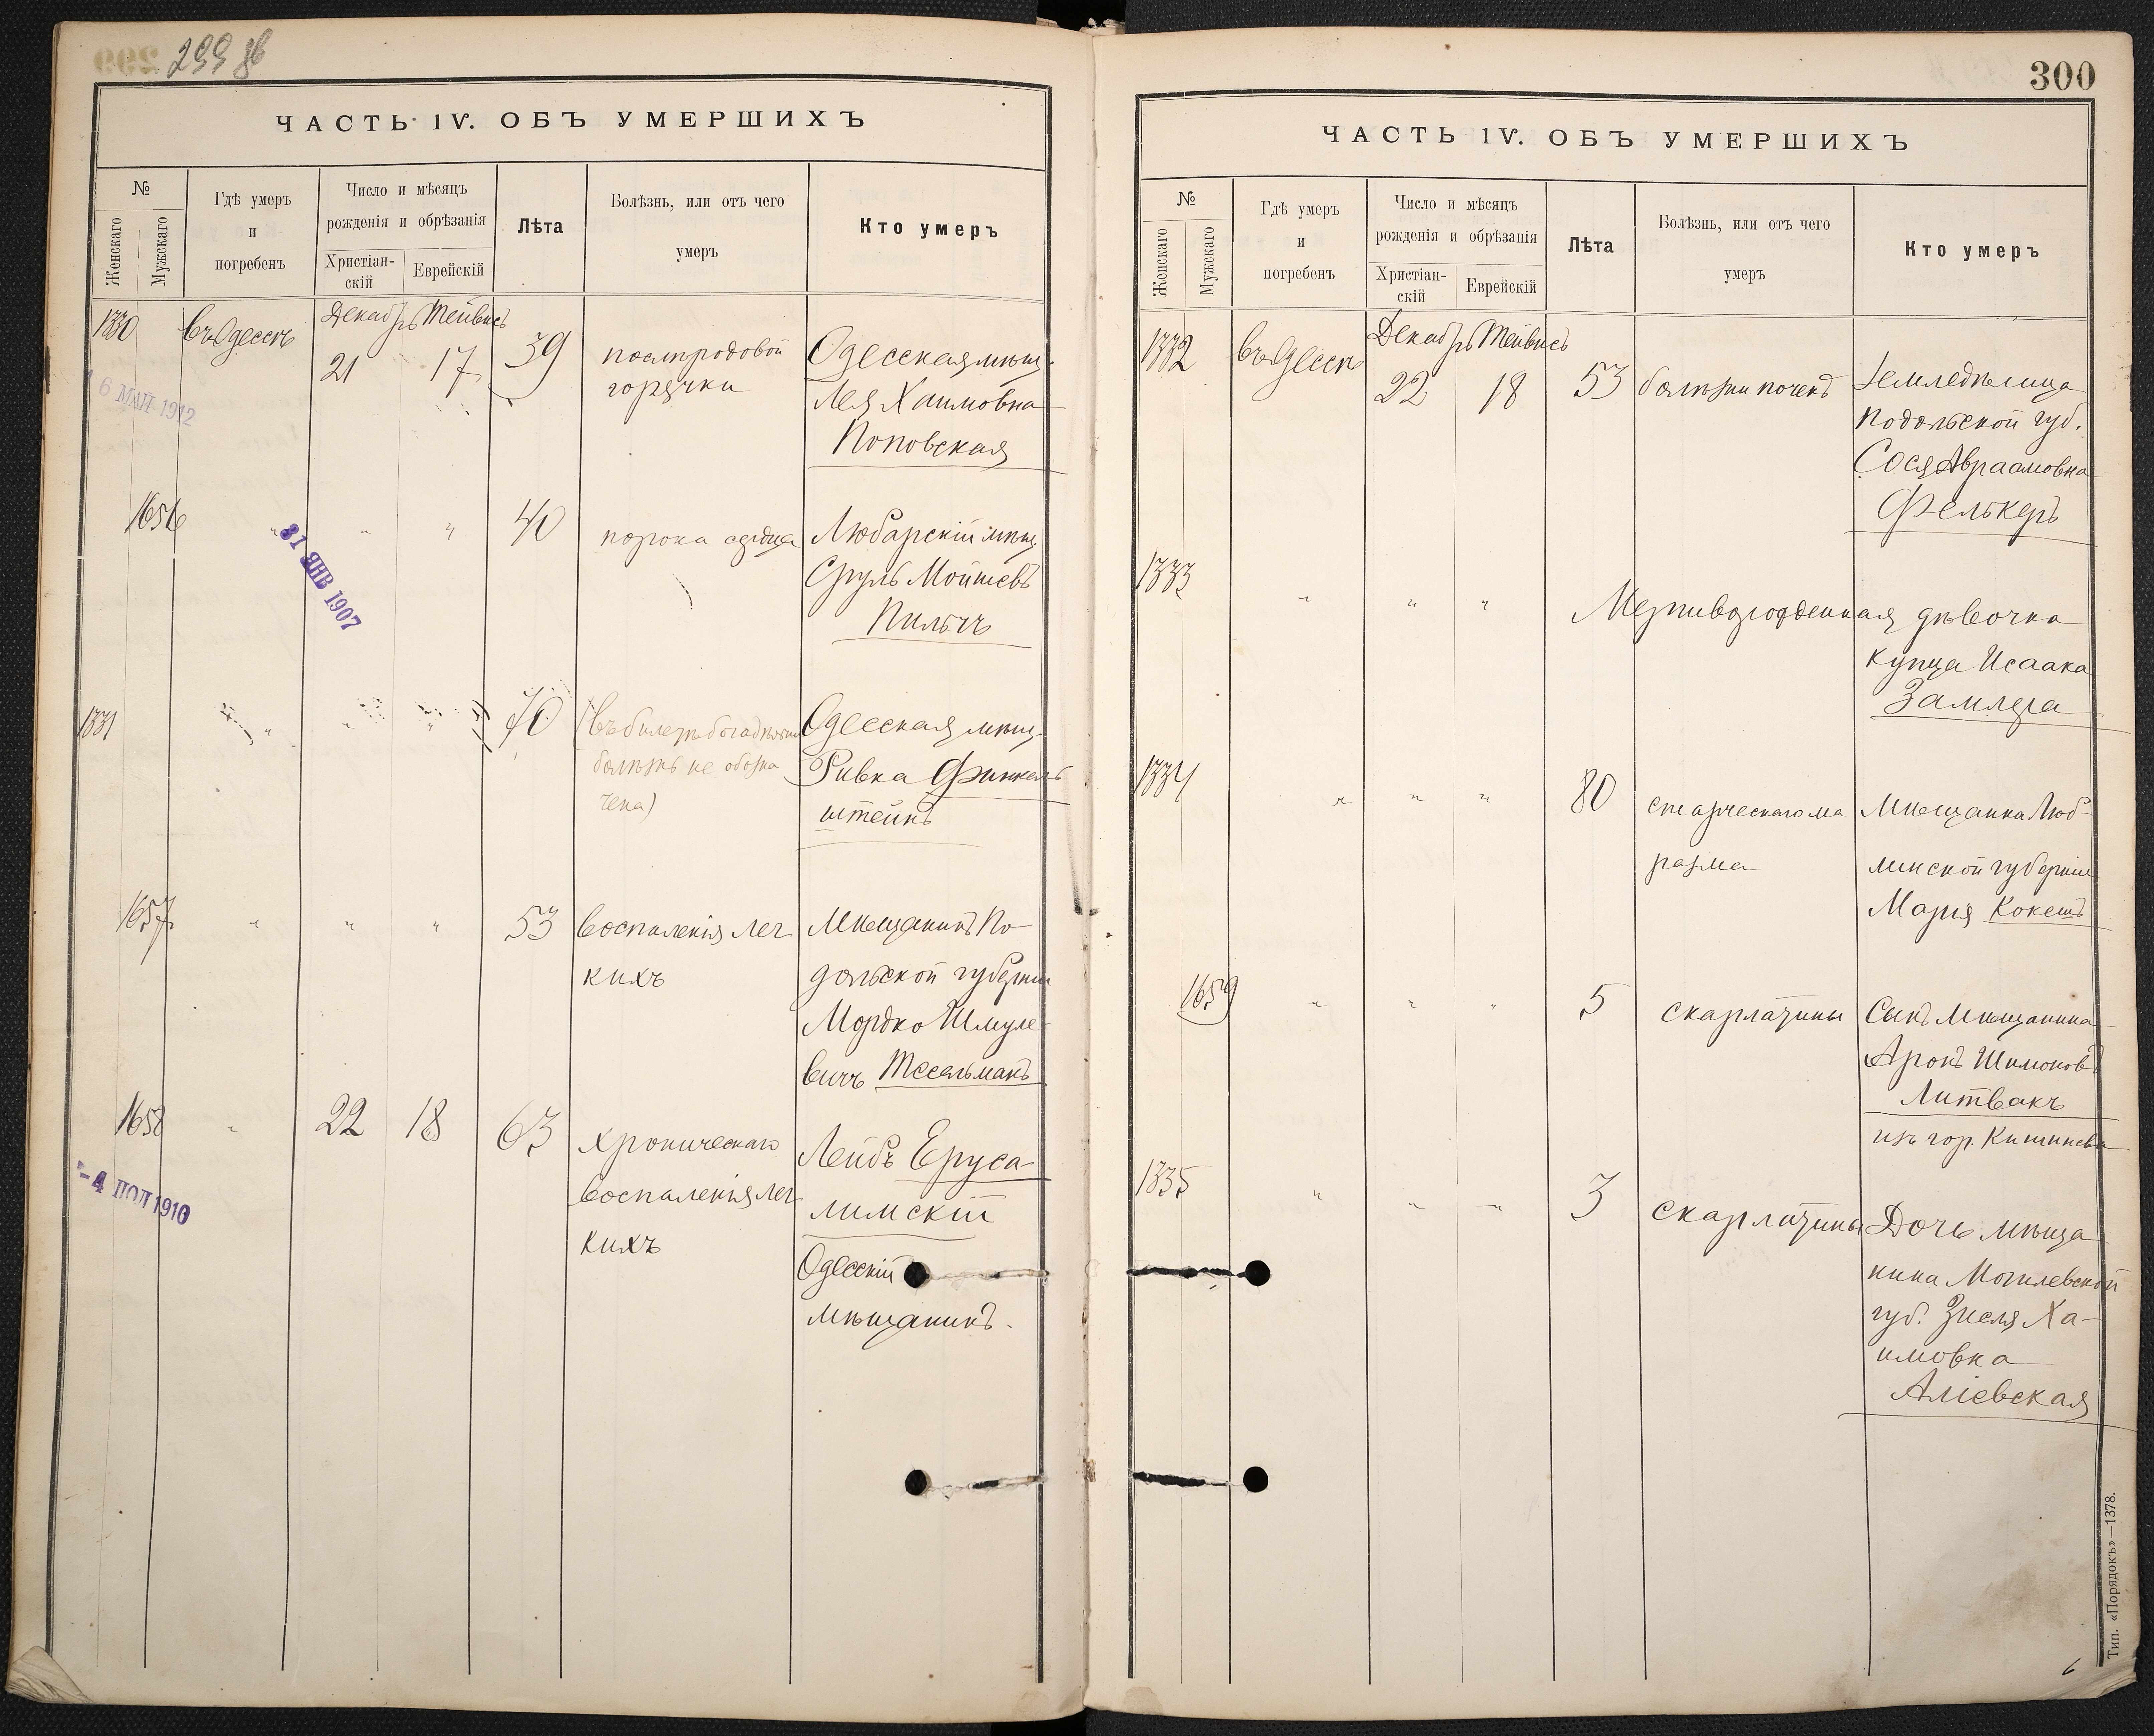 299 об
ЧАСТЬ IV. ОБЪ УМЕРШИХЪ
№
Женскаго
Мужскаго
Гдѣ умеръ
и
погребенъ
Число и мѣсяцъ
рожденія и обрѣзанія
Христіан-
скій
Еврейскій
Лѣта
Болѣзнь, или отъ чего
умеръ
Кто умеръ
1330 въ Одессѣ Декабрь Тейвисъ
21 17 39 послѣродовой Одесская мѣщ.
горячки Лея Хаимовна
Поповская
16 МАЙ 1912
1656 " " " 40 порока сердца Любарскій мѣщ.
Сруль Мойшевъ
Пильчъ
31 ЯНВ 1907
1331 " " " 70 (въ билетѣ богадѣльни Одесская мѣщ.
болѣзнь не обозна Ривка Финкель
чена) штейнъ
1657 " " " 53 воспаленія лег Мѣщанинъ По-
кихъ дольской губерніи
Мордко Шмуле-
вичъ Тесельманъ
1658 " 22 18 63 хроническаго Лейбъ Еруса-
воспаленія лег лимскій
кихъ Одесскій
мѣщанинъ.
-4 1910
300
ЧАСТЬ IV. ОБЪ УМЕРШИХЪ
№
Женскаго
Мужскаго
Гдѣ умеръ
и
погребенъ
Число и мѣсяцъ
рожденія и обрѣзанія
Христіан-
скій
Еврейскій
Лѣта
Болѣзнь, или отъ чего
умеръ
Кто умеръ
1332 въ Одессѣ Декабрь Тейвисъ
22 18 53 болѣзни почекъ Земледѣлица
Подольской губ.
Сося Авраамовна
Фелькеръ
1333 " " " Мертворожденная дѣвочка
купца Исаака
Замлера
1334 " " " 80 старческаго ма Мѣщанка Люб-
разма линской губерніи
Марія Кокешъ
1659 " " " 5 скарлатины Сынъ мѣщанина
Аронъ Шимоновъ
Литвакъ
изъ гор. Кишинева
1335 " " " 3 скарлатины Дочь мѣща
нина Могилевской
губ. Зисля Ха-
имовна
Аліевская
Тип. «Порядокъ»—1378.